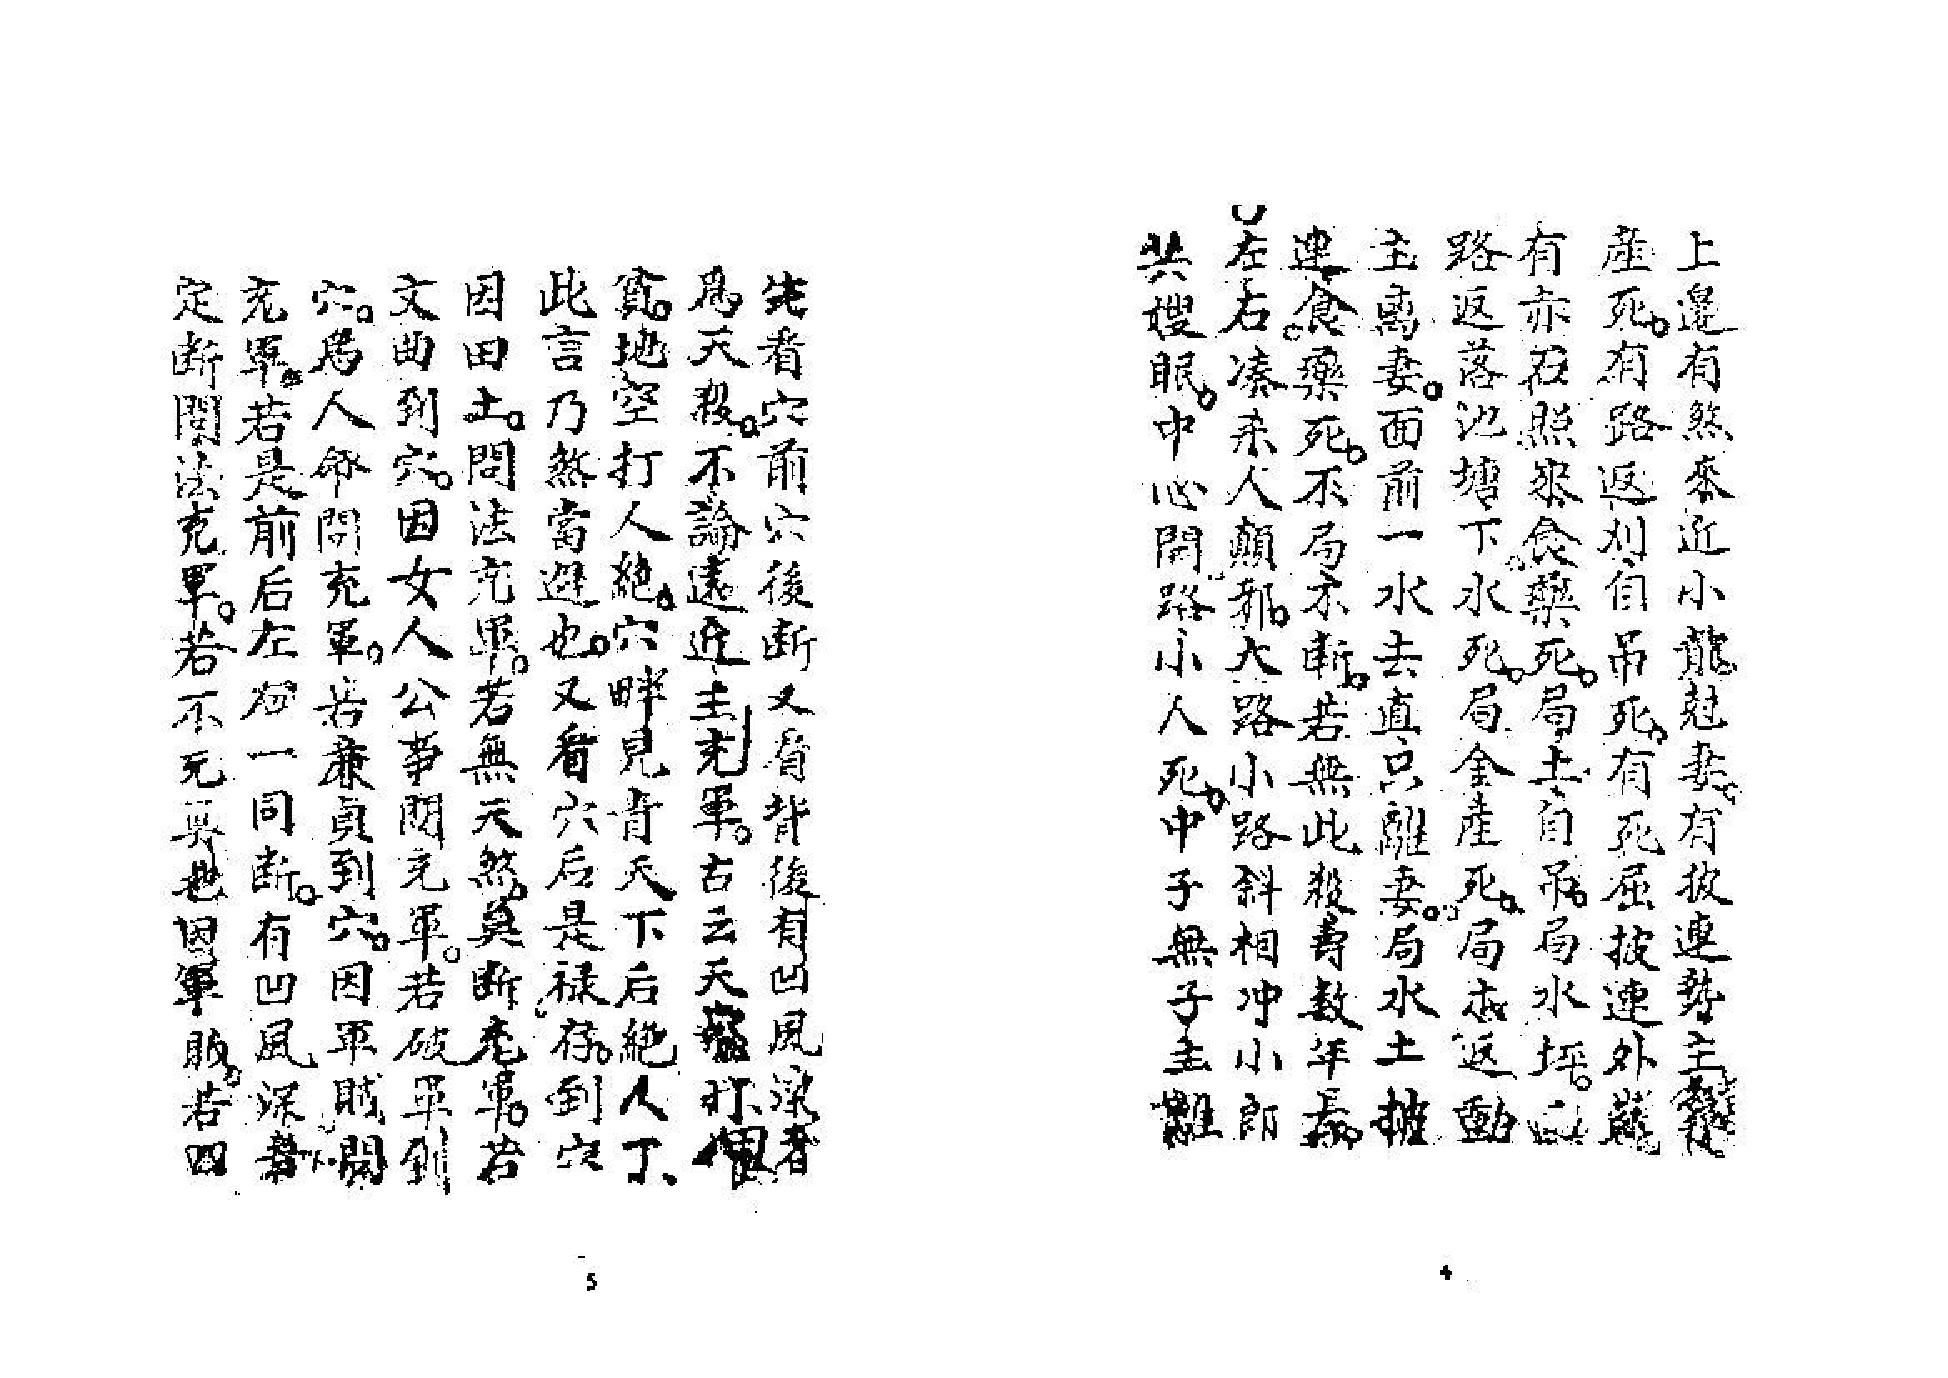 上邉有煞來近小龍尅妻。有披連勢主
産死。有路返刈自吊死。有死屈披連外
有赤石照來食藥死。局土自吊。局水坪。
路返落氹塘下水死。局金産死。局木返動
主离妻。面前一水去直只離妻。局水土披
連。食藥死。不局不斬。若無此殺壽数年長
左右凑来人顛邪。大路小路斜相冲小郎
共嫂眠。中心開路小人死。中子無子主離
4
先看穴前穴後断又看背後有凹風深者
爲天殺。不論遠近主充軍。古云天
貧。地空打人絶。穴畔見青天下后絶人丁
此言乃煞當避也。又看穴后是禄存。到穴
因田土。問法充軍。若無天煞。莫断充軍。若
文曲到穴。因女人公事問充軍。若破軍到
穴。爲人命問充軍。若亷貞到穴。因軍賊問
充軍。若是前后左右一同断。有凹風深
定断問法充軍。若不充軍也因軍敗。若四
5